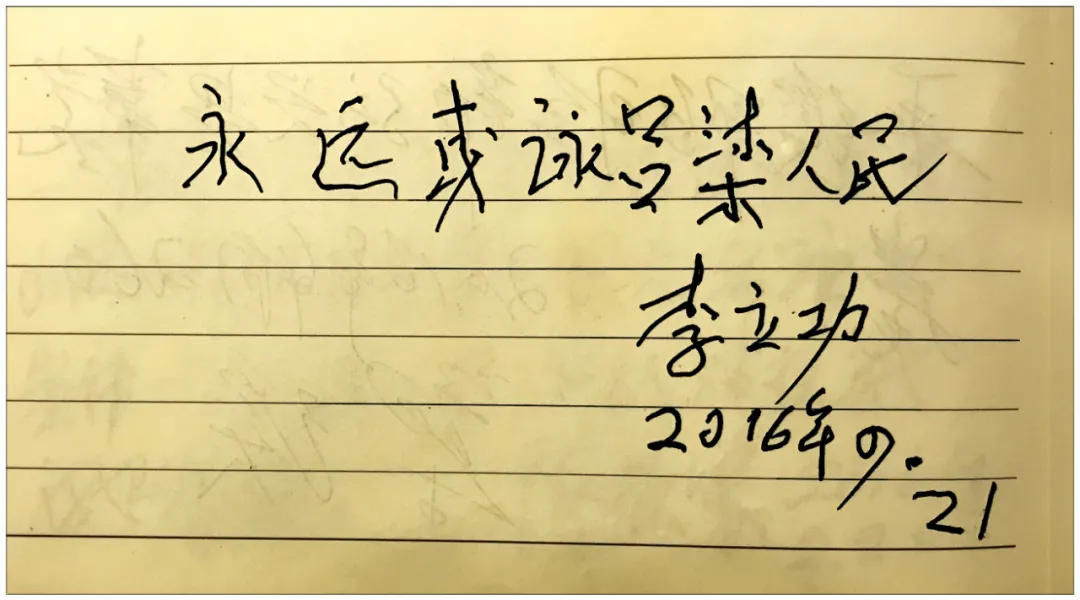 永远吕梁人民
李立功
2016年9.
21